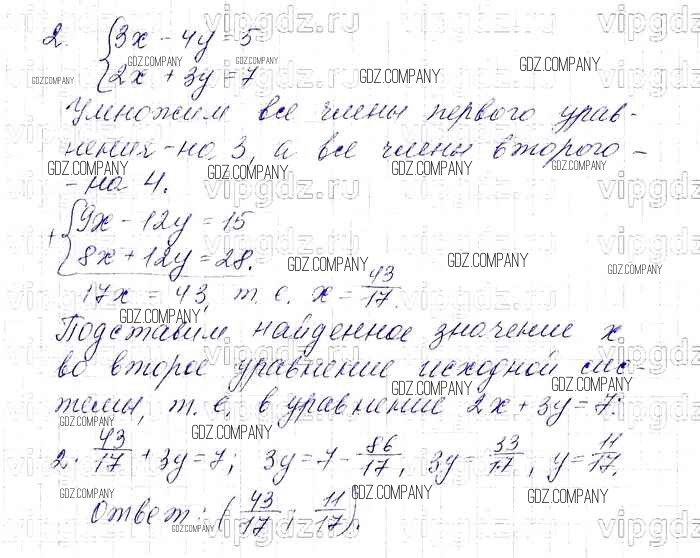 2. {3x - 4y = 5
{2x + 3y = 7
Умножим все члены первого урав-
нения - на 3, а все члены второго -
- на 4.
+ {9x - 12y = 15
{8x + 12y = 28.
17x = 43, т. е. x = 43/17.
Подставим найденное значение x
во второе уравнение исходной сис-
темы, т. е. в уравнение 2x + 3y = 7:
2 · 43/17 + 3y = 7; 3y = 7 - 86/17, 3y = 33/17, y = 11/17.
Ответ: (43/17; 11/17).
vipgdz.ru
GDZ.COMPANY